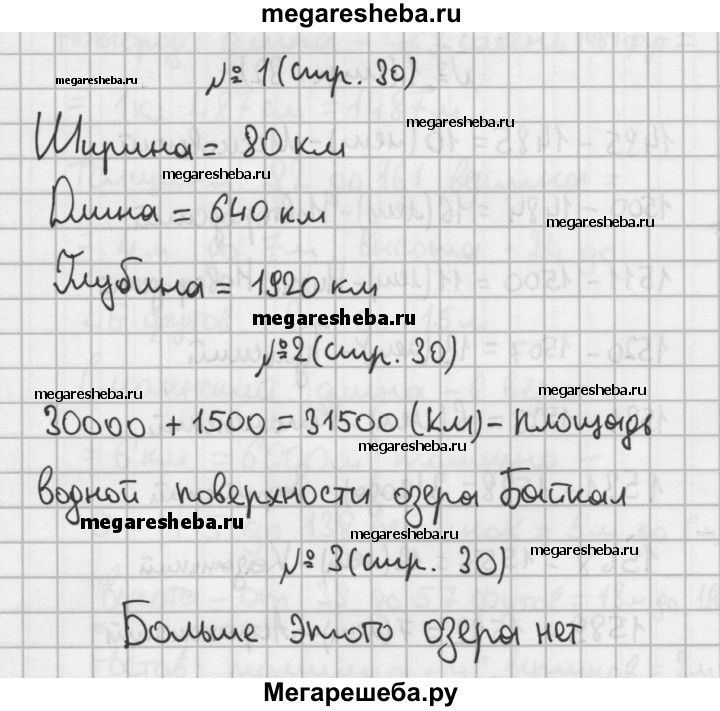 megaresheba.ru
№ 1 (стр. 30)
megaresheba.ru
megaresheba.ru
Ширина = 80 км
megaresheba.ru
Длина = 640 км
megaresheba.ru
Глубина = 1920 км
megaresheba.ru
№ 2 (стр. 30)
megaresheba.ru
megaresheba.ru
30000 + 1500 = 31500 (км) - площадь
megaresheba.ru
водной поверхности озера Байкал
megaresheba.ru
megaresheba.ru
megaresheba.ru
№ 3 (стр. 30)
Больше этого озера нет
Мегарешеба.ру